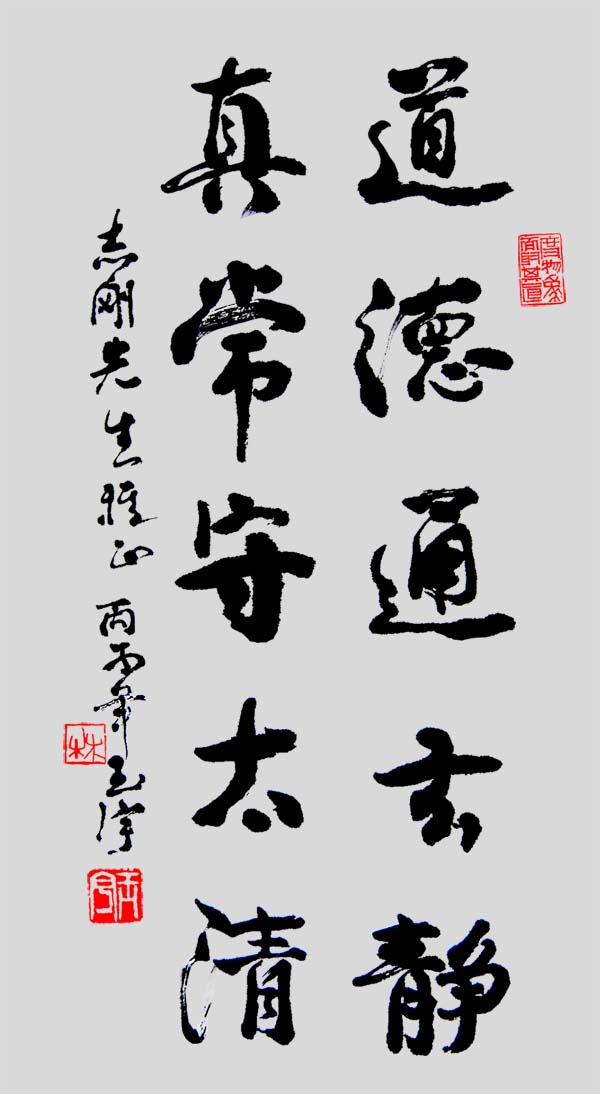 道德通玄静
真常守太清
志刚先生雅正 丙